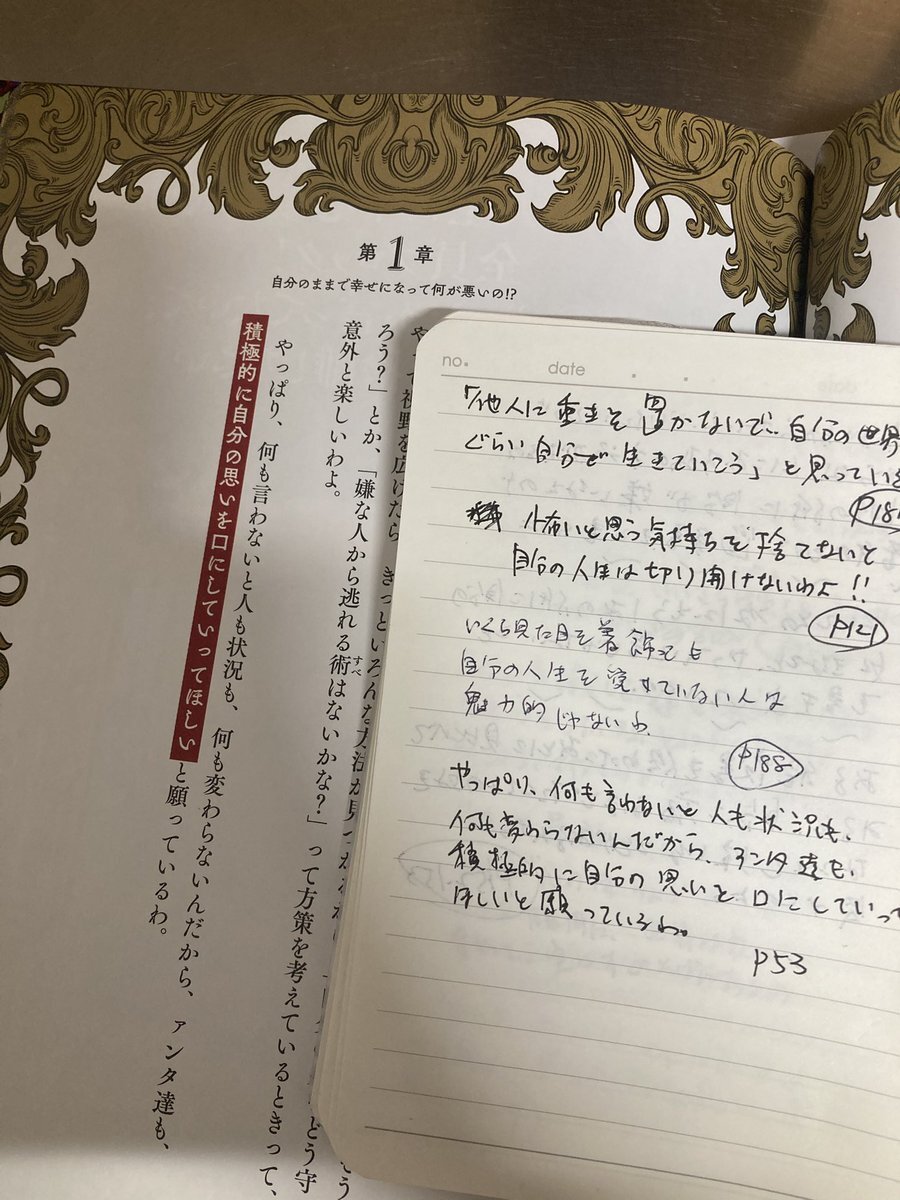 第1章
自分のままで幸せになって何が悪いの!?
視野を広げたら、きっといろんな
ろう？」とか、「嫌な人から逃れる術はないかな？」って方策を考えているときって、
すべ
意外と楽しいわよ。
やっぱり、何も言わないと人も状況も、何も変わらないんだから、アンタ達も、
積極的に自分の思いを口にしていってほしいと願っているわ。
どう守
no.
date
「他人に重きを置かないで… 自分の世界
ぐらい自分で生きていこう」と思っている
怖いと思う気持ちを捨てないと
自分の人生は切り開けないわよ!!
P121
いくら見た目を着飾っても
自分の人生を愛せていない人は
魅力的じゃないわ
P188
やっぱり、何も言わないと人も状況も、
何も変わらないんだから、アンタ達も、
積極的に自分の思いを口にしていって
ほしいと願っているわ。
P53